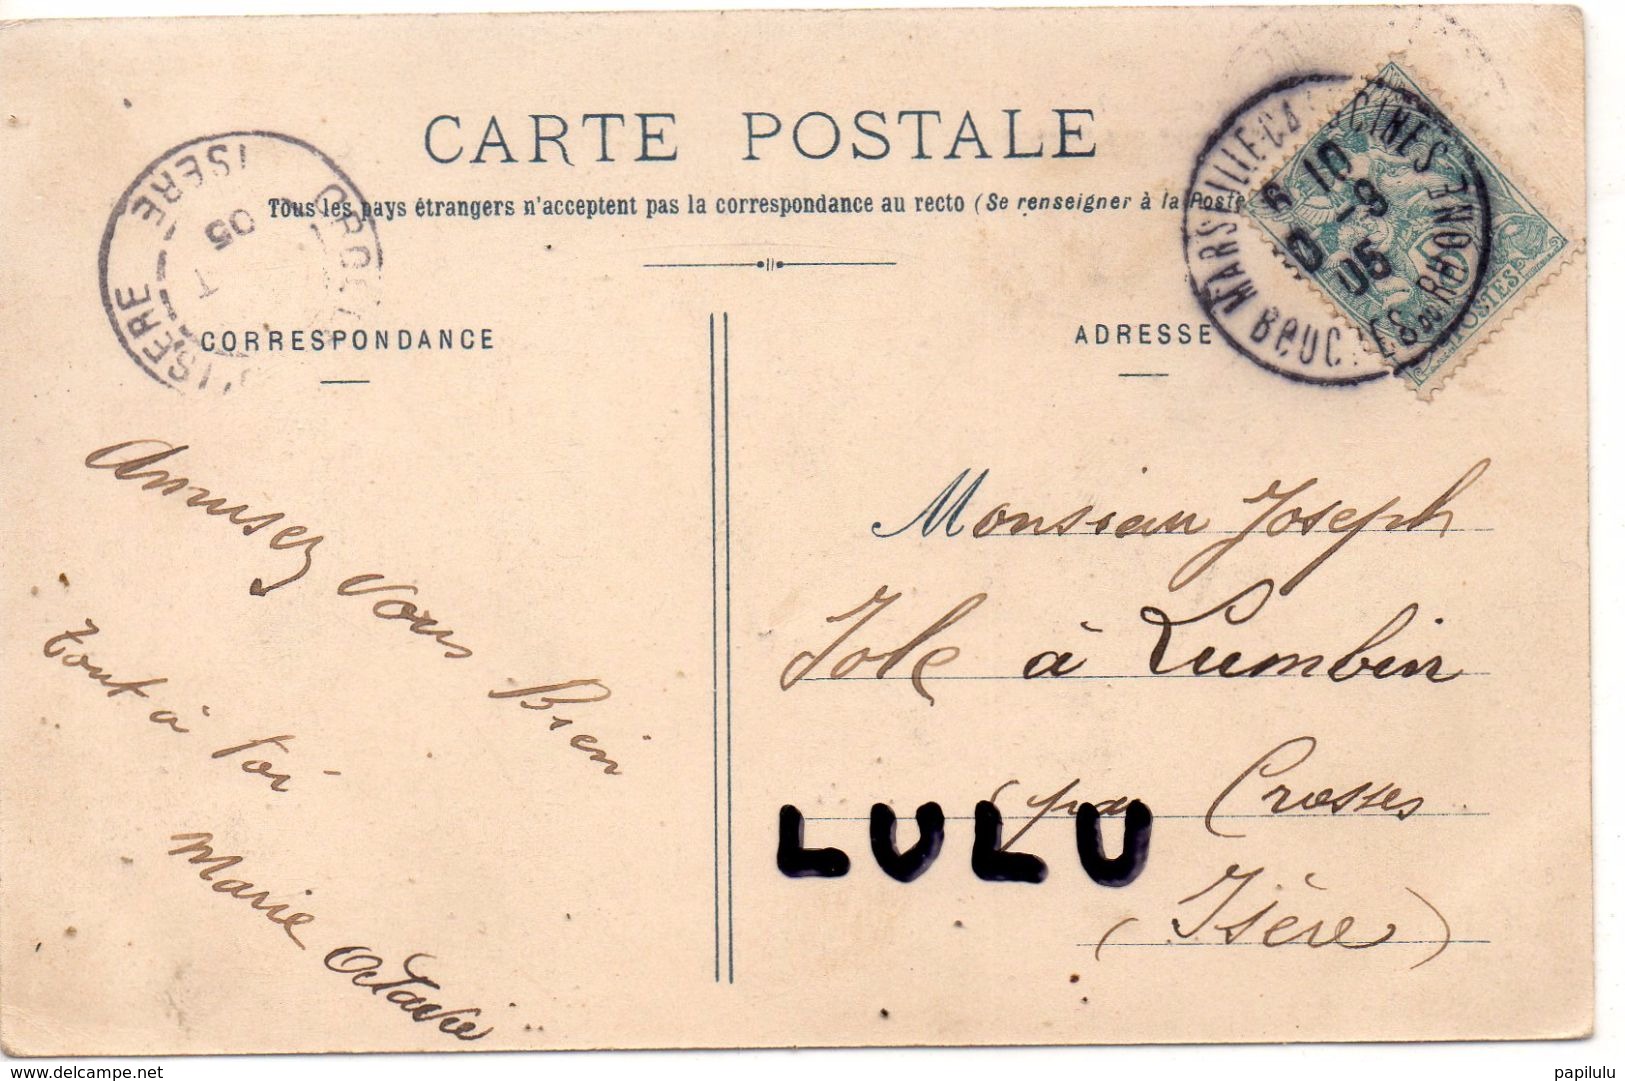 CARTE POSTALE
Tous les pays étrangers n'acceptent pas la correspondance au recto (Se renseigner à la Poste
CORRESPONDANCE
ADRESSE
MARSEILLE CAPUCINES
6 10
-9
05
BOUCHES DU RHONE
POSTES
ISERE
05
ISERE
Amusez vous Bien
tout à toi
Marie Octavie
Monsieur Joseph
Jole à Lumbin
(par Crosses
(Isère)
LULU
delcampe.net
papilulu